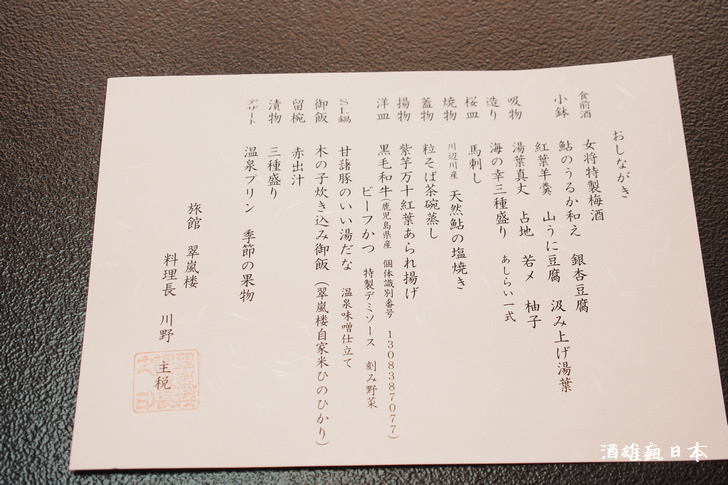 おしながき
食前酒 女将特製梅酒
小鉢 鮎のうるか和え 銀杏豆腐
紅葉羊羹 山うに豆腐 汲み上げ湯葉
吸物 湯葉真丈 占地 若メ 柚子
造り 海の幸三種盛り あしらい一式
桜皿 馬刺し
焼物 川辺川産 天然鮎の塩焼き
蓋物 粒そば茶碗蒸し
揚物 紫芋万十紅葉あられ揚げ
洋皿 黒毛和牛(鹿児島県産 個体識別番号 1308387077)
ビーフかつ 特製デミソース 刻み野菜
SL鍋 甘藷豚のいい湯だな 温泉味噌仕立て
御飯 木の子炊き込み御飯(翠嵐楼自家米ひのひかり)
留椀 赤出汁
漬物 三種盛り
デザート 温泉プリン 季節の果物
旅館 翠嵐楼
料理長 川野 主税
酒雄瘋日本